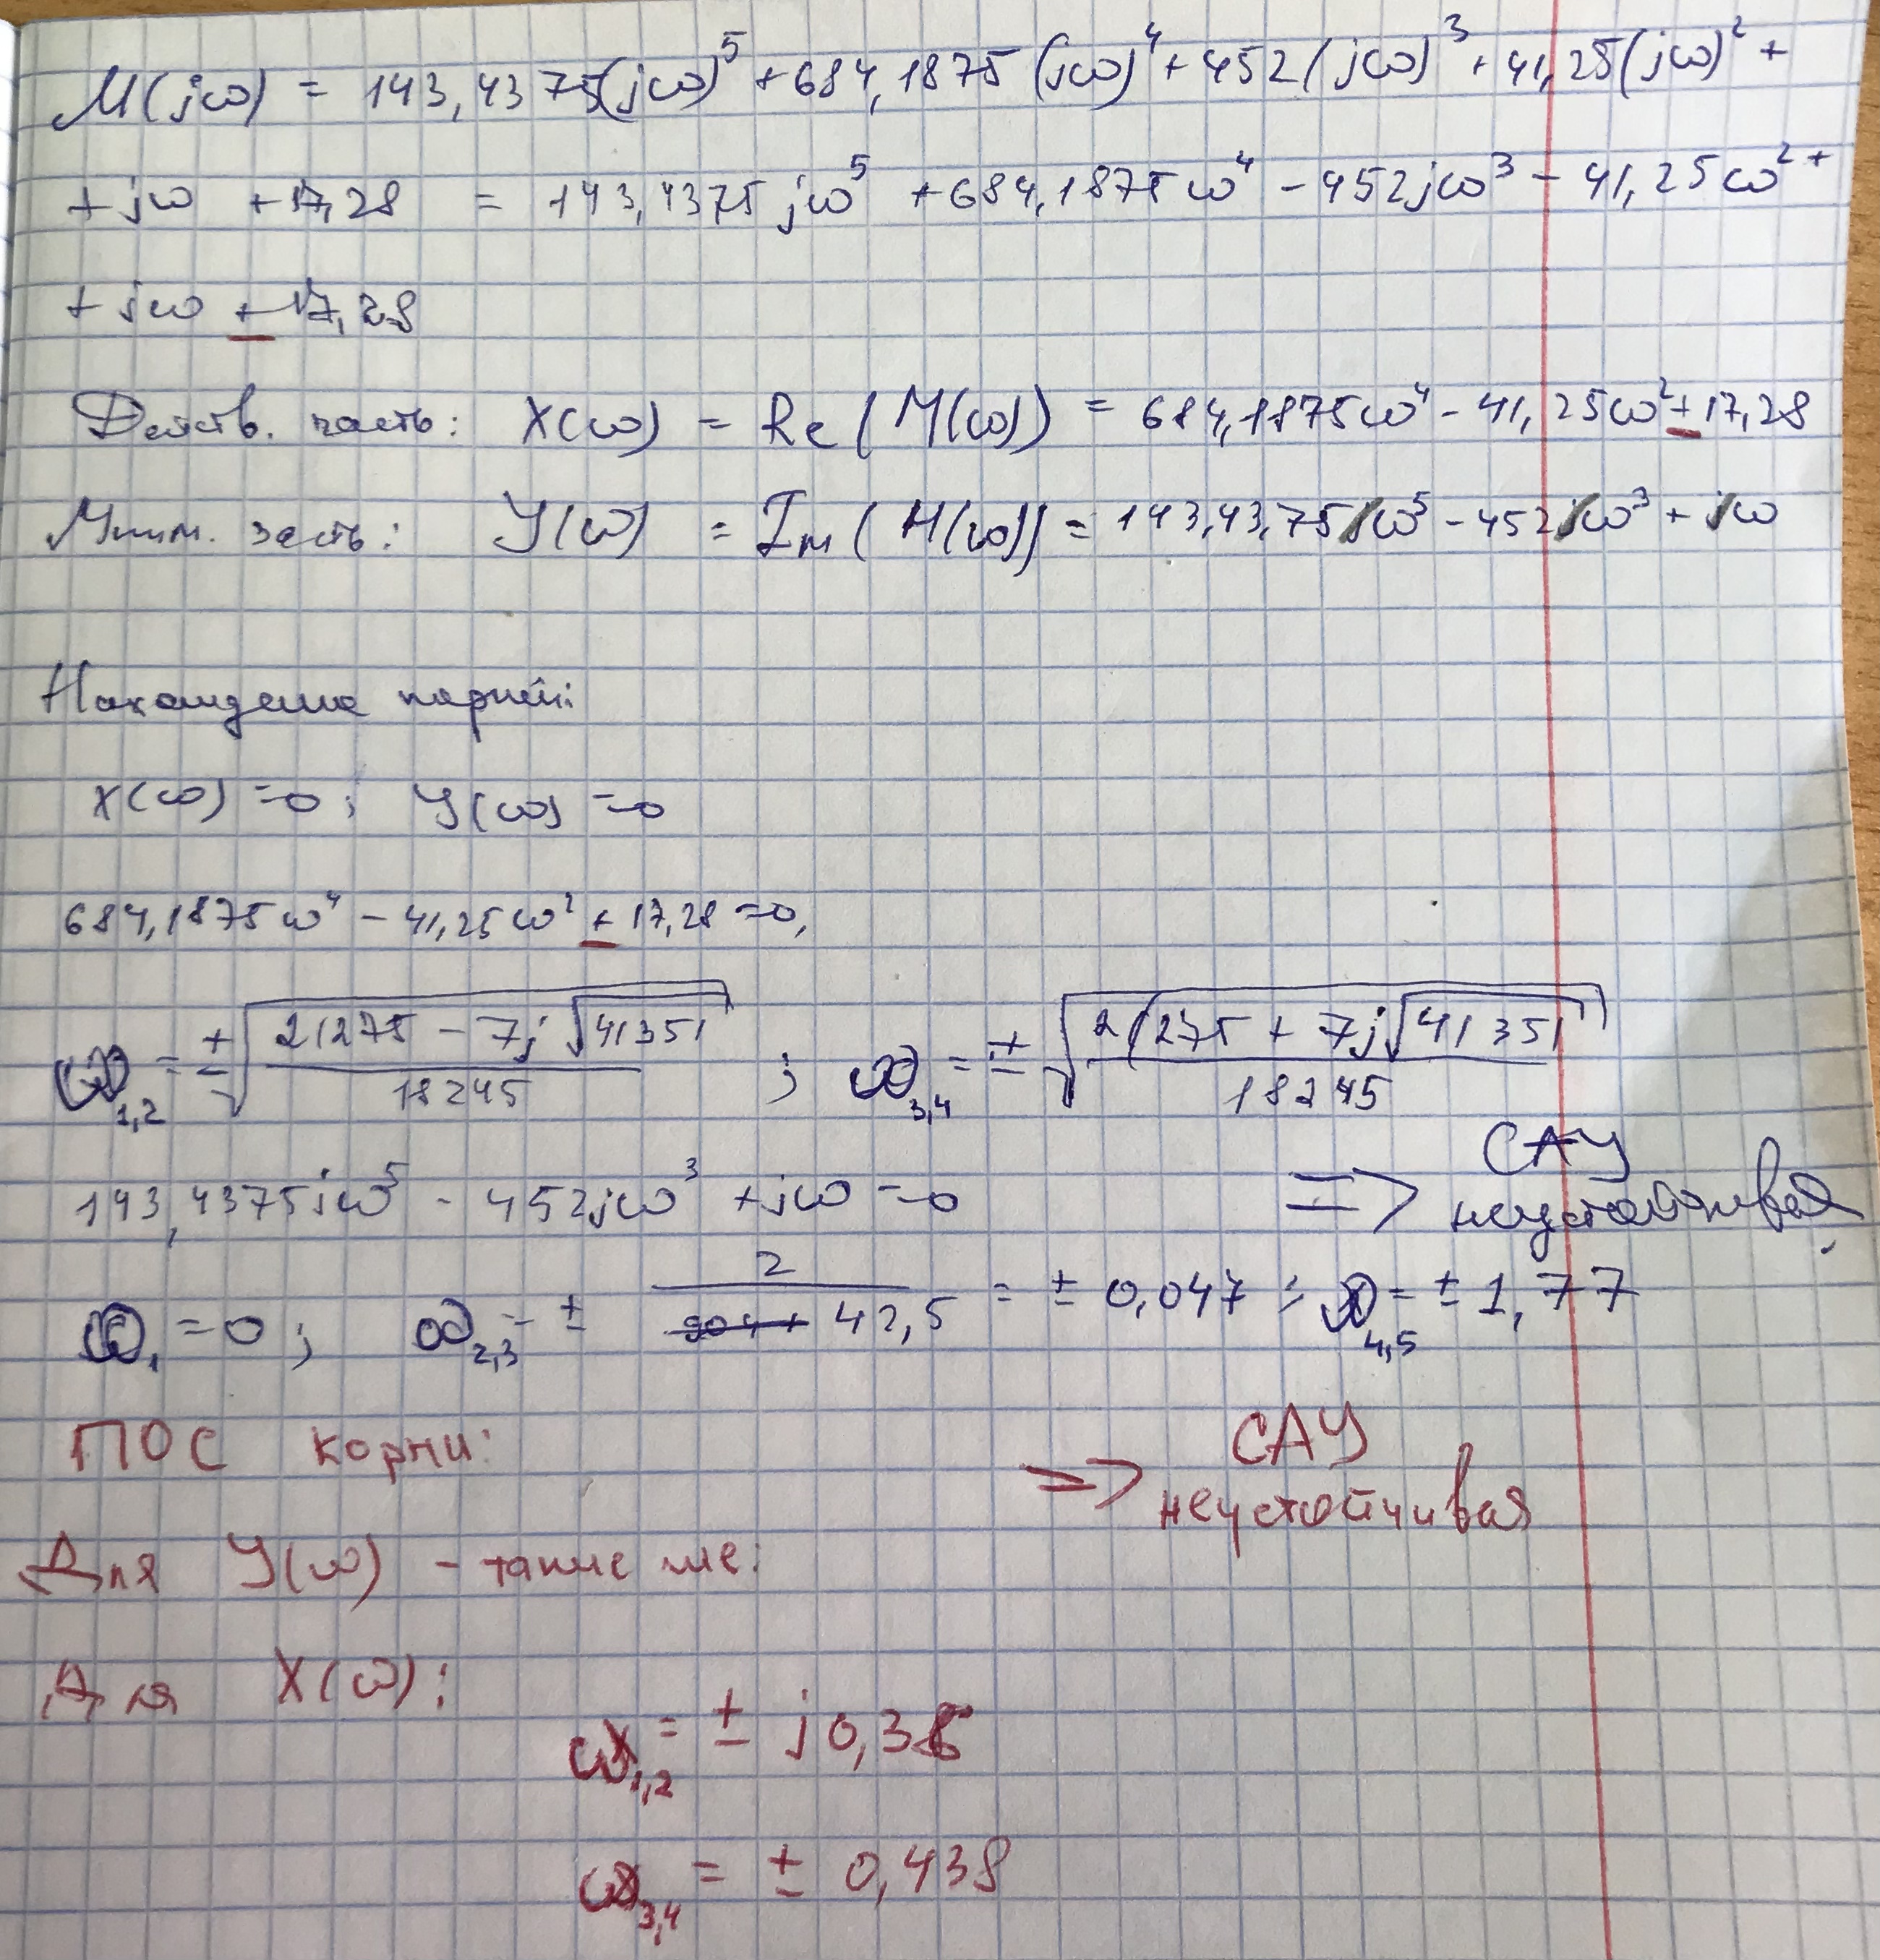 M(jω) = 143,4375(jω)^5 + 684,1875 (jω)^4 + 452 (jω)^3 + 41,25(jω)^2 +
+ jω + 17,28 = 143,4375 jω^5 + 684,1875 ω^4 - 452jω^3 - 41,25 ω^2 +
+ jω + 17,28
Действ. часть: X(ω) = Re (M(ω)) = 684,1875ω^4 - 41,25ω^2 + 17,28
Мним. часть: Y(ω) = Im (M(ω)) = 143,43,75 ω^5 - 452 ω^3 + ω
Нахождение корней:
X(ω) = 0; Y(ω) = 0
684,1875 ω^4 - 41,25 ω^2 + 17,28 = 0,
ω_1,2 = ± √(2(275 - 7j √41351 / 18245) ; ω_3,4 = ± √(2(275 + 7j √41351 / 18245)
143,4375 jω^5 - 452jω^3 + jω = 0 => САУ неустойчивая.
ω_1 = 0; ω_2,3 = ± 2 / 42,5 = ± 0,047 ; ω_4,5 = ± 1,77
ПОС корни: => САУ неустойчивая
Для Y(ω) - такие же:
Для X(ω):
ω_1,2 = ± j 0,36
ω_3,4 = ± 0,438